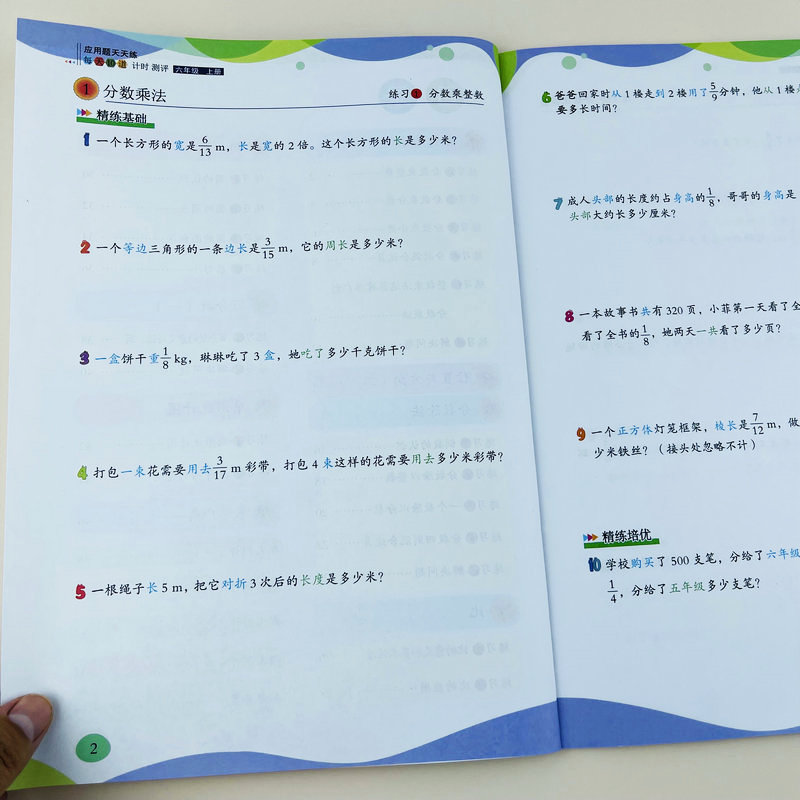 应用题天天练
每天10道 计时 测评 六年级 上册
1 分数乘法 练习1 分数乘整数
精练基础
1 一个长方形的宽是6/13 m，长是宽的2倍。这个长方形的长是多少米？
2 一个等边三角形的一条边长是3/15 m，它的周长是多少米？
3 一盒饼干重1/8 kg，琳琳吃了3盒，她吃了多少千克饼干？
4 打包一束花需要用去3/17 m彩带，打包4束这样的花需要用去多少米彩带？
5 一根绳子长5 m，把它对折3次后的长度是多少米？
2
6 爸爸回家时从1楼走到2楼用了5/9分钟，他从1楼
要多长时间？
7 成人头部的长度约占身高的1/8，哥哥的身高是
头部大约长多少厘米？
8 一本故事书共有320页，小菲第一天看了全
看了全书的1/8，她两天一共看了多少页？
9 一个正方体灯笼框架，棱长是7/12 m，做
少米铁丝？（接头处忽略不计）
精练培优
10 学校购买了500支笔，分给了六年级
1/4，分给了五年级多少支笔？